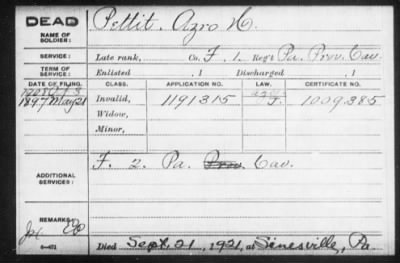 DEAD
NAME OF SOLDIER: Pettit, Azro H.
SERVICE: Late rank, Co. F, 1. Reg't Pa. Prov. Cav.
TERM OF SERVICE: Enlisted , 1 Discharged , 1
DATE OF FILING. CLASS. APPLICATION NO. LAW. CERTIFICATE NO.
1897 May 21 Invalid, 1191315 J. 1009.385
Widow,
Minor,
ADDITIONAL SERVICES: F. 2. Pa. Prov. Cav.
REMARKS:
Died Sept. 21, 1921, at Linesville, Pa.